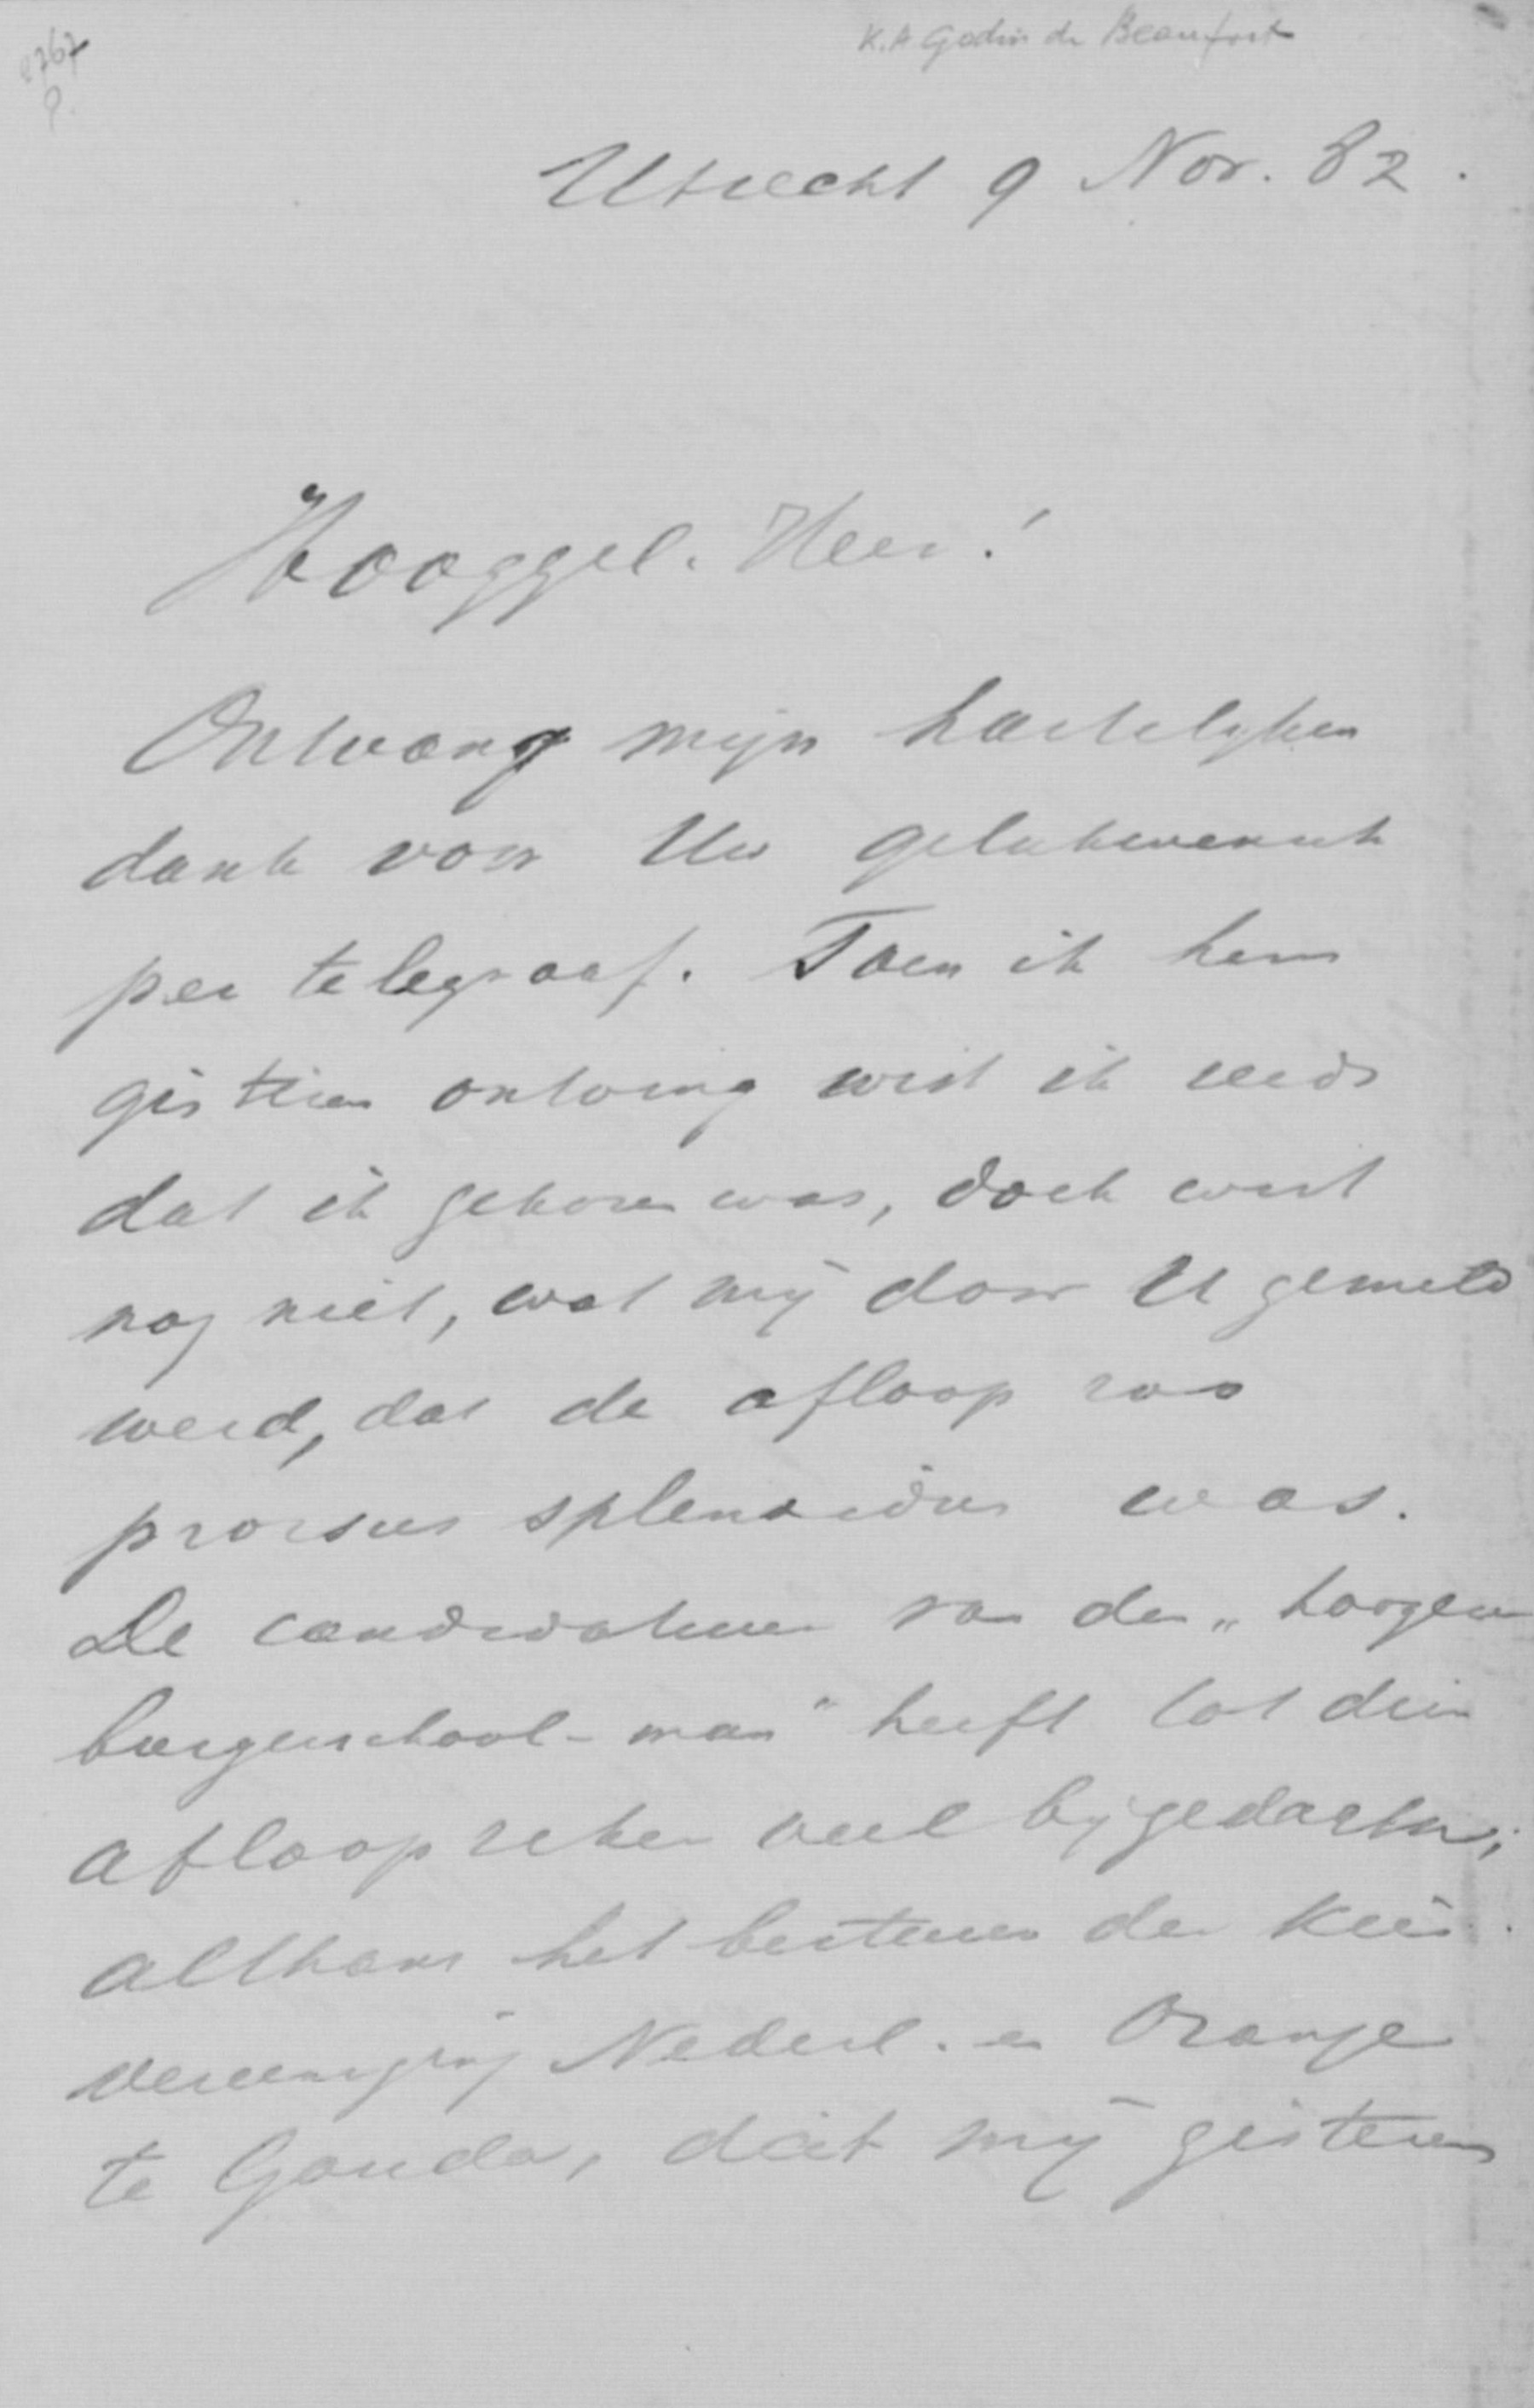 K.A. Godin de Beaufort
2767
P.
Utrecht 9 Nov. 82.
Hooggel. Heer!
Ontvang mijn hartelyken
dank voor Uw gelukwensch
per telegraaf. Toen ik hem
gisteren ontving wist ik reeds
dat ik gekozen was, doch wist
nog niet, wat mij door U gemeld
werd, dat de afloop zoo
prorsus splendidus was.
De candidatuur van den "hoogen
burgerschool-man" heeft tot dien
afloop zeker veel bygedragen;
althans het bestuur der Kies
vereeniging Nederl. en Oranje
te Gouda, dat mij gisteren